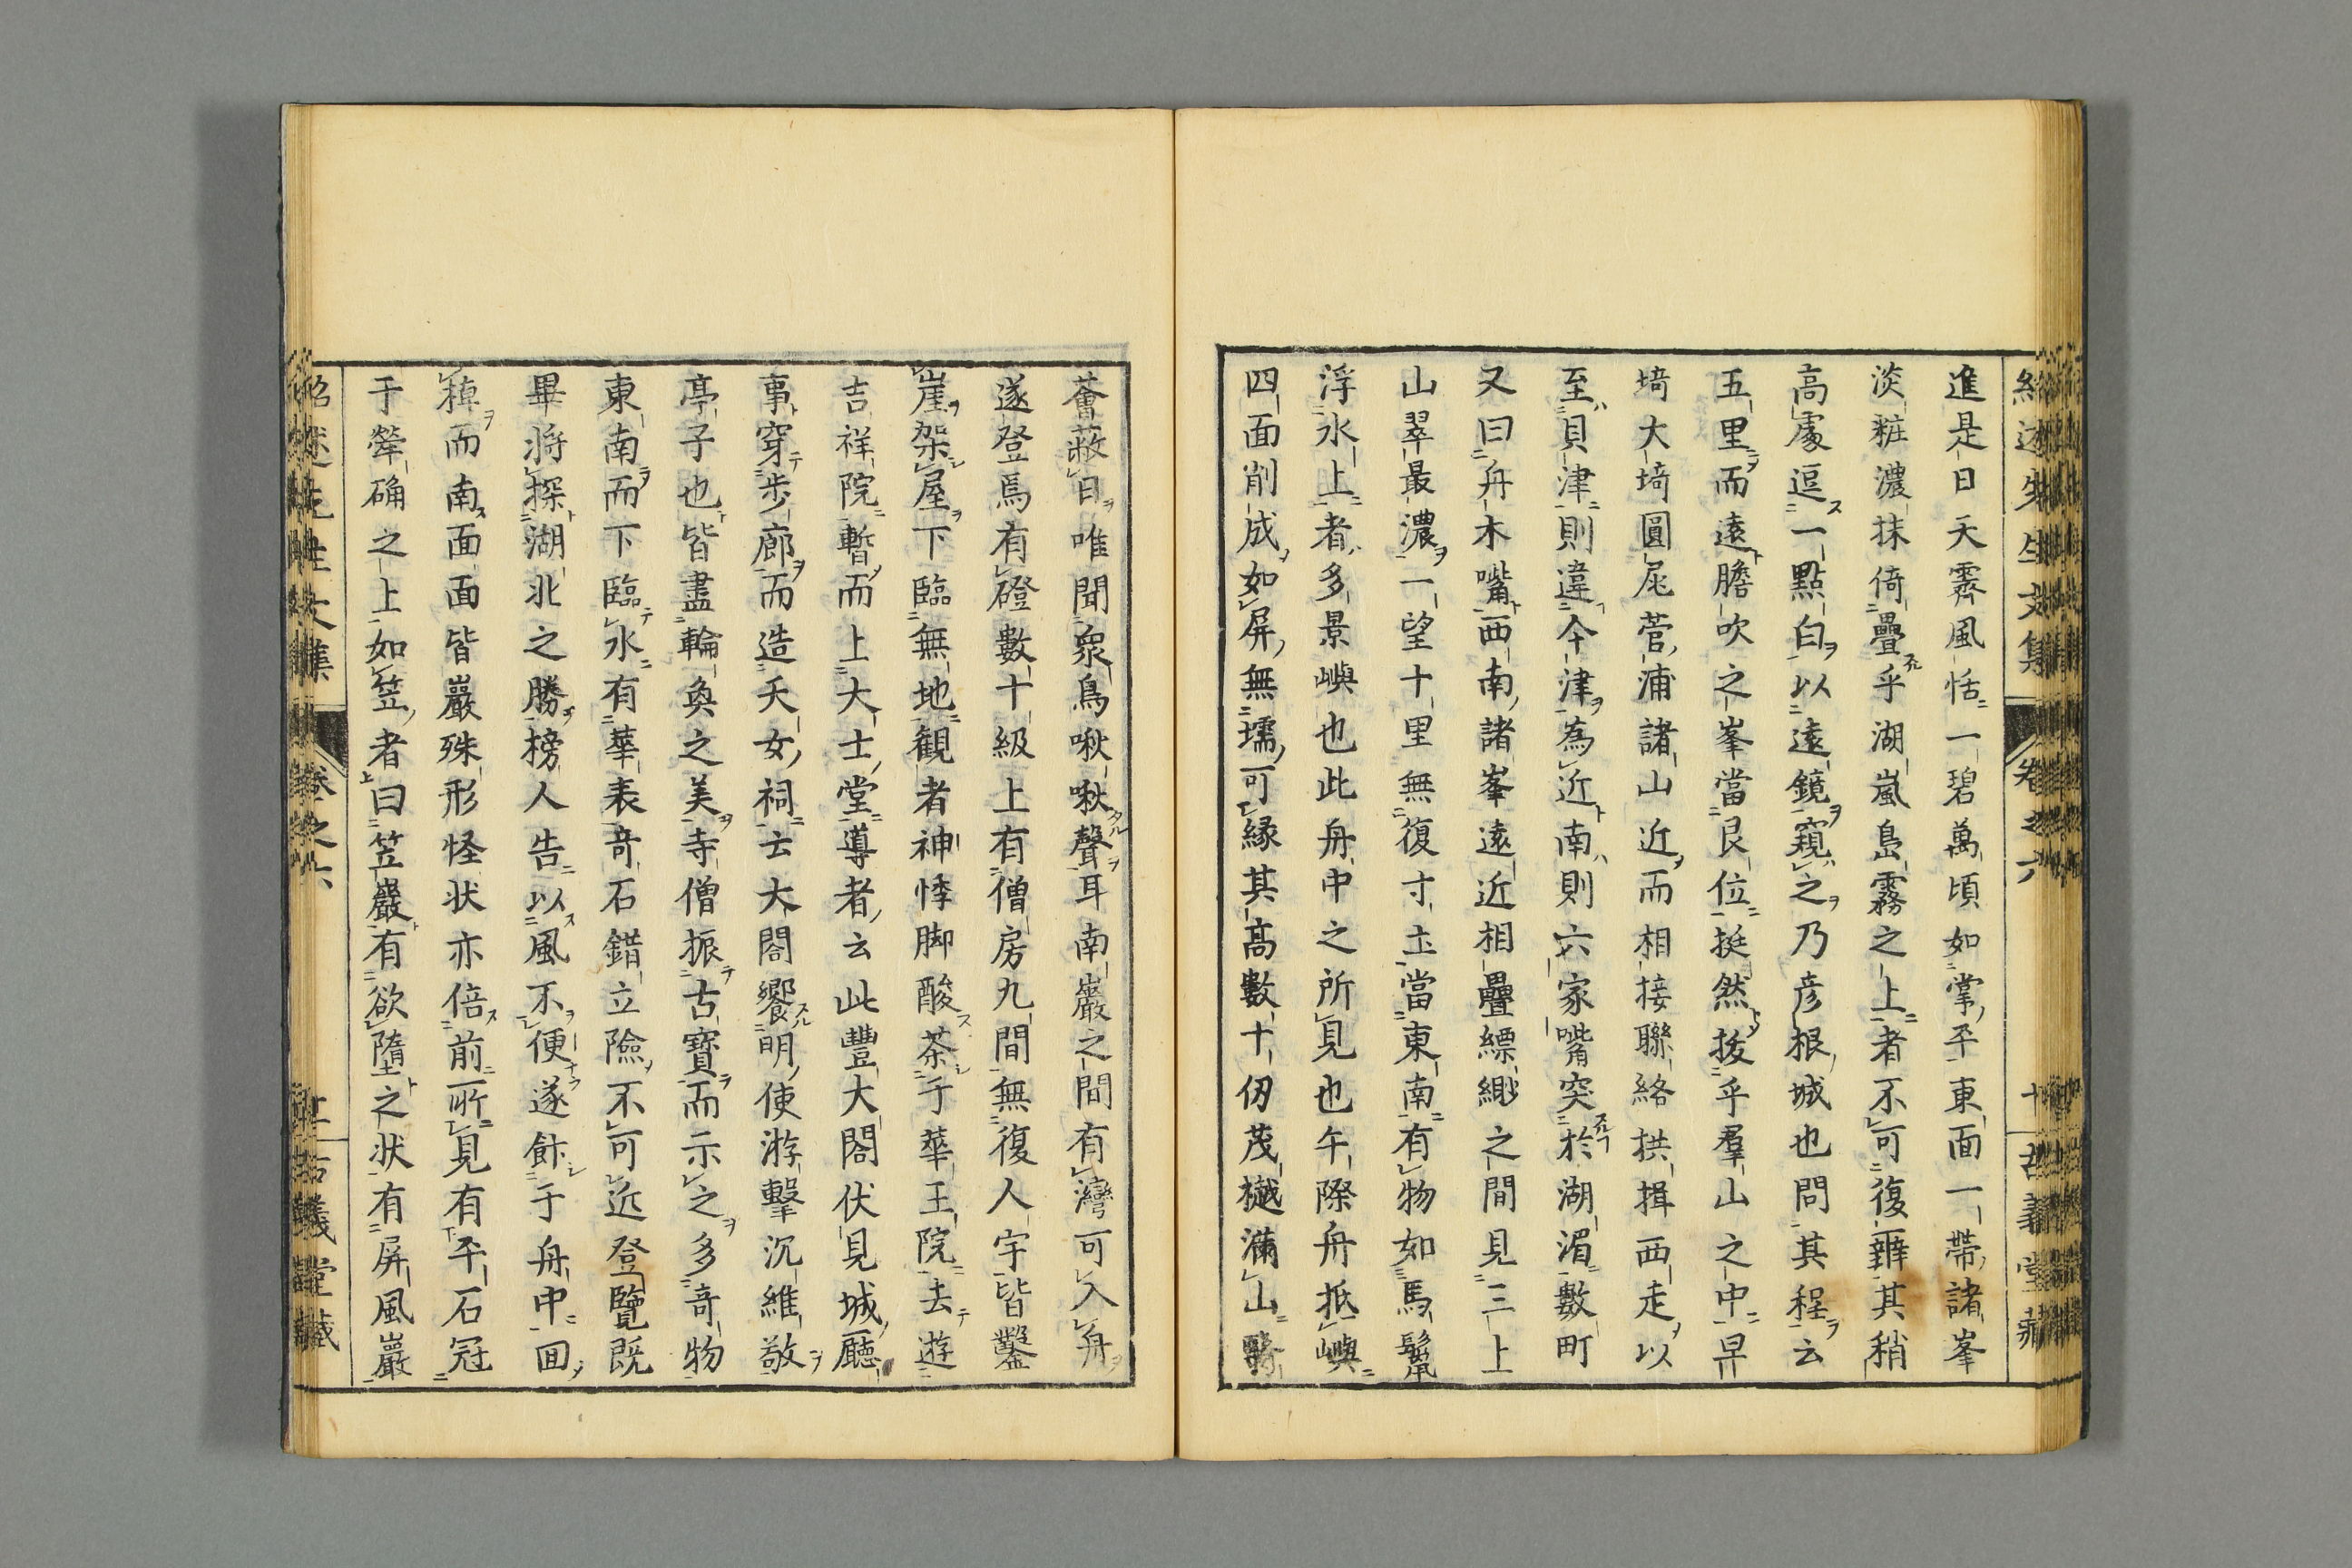 進是日天霽風恬一碧萬頃如掌平東面一帶諸峯
淡粧濃抹倚疊乎湖嵐島霧之上者不可復辨其稍
高處逗一點白以遠鏡窺之乃彦根城也問其程云
五里而遠膽吹之峯當艮位挺然拔乎羣山之中早
埼大埼圓尾菅浦諸山近而相接聯絡拱揖西走以
至貝津則違今津為近南則六家嘴突於湖湄數町
又曰舟木嘴西南諸峯遠近相疊縹緲之間見三上
山翠最濃一望十里無復寸土當東南有物如馬鬣
浮水上者多景嶼也此舟中之所見也午際舟抵嶼
四面削成如屏無壖可緣其高數十仞茂樾滿山
薈蔽日唯聞衆鳥啾啾聲耳南巖之間有灣可入舟
遂登焉有磴數十級上有僧房九間無復人宇皆鑿
崖架屋下臨無地観者神悸脚酸茶于華王院去遊
吉祥院暫而上大士堂導者云此豐大閤伏見城廳
事穿步廊而造天女祠云大閤饗明使游擊沉維敬
亭子也皆盡輪奐之美寺僧振古寶而示之多竒物
東南而下臨水有華表竒石錯立險不可近登覽既
畢將探湖北之勝榜人告以風不便遂飰于舟中回
棹而南面面皆巖殊形怪状亦倍前所見有平石冠
于犖确之上如笠者曰笠巖有欲墮之状有屏風巖
紹述先生文集
卷之六
古義堂藏